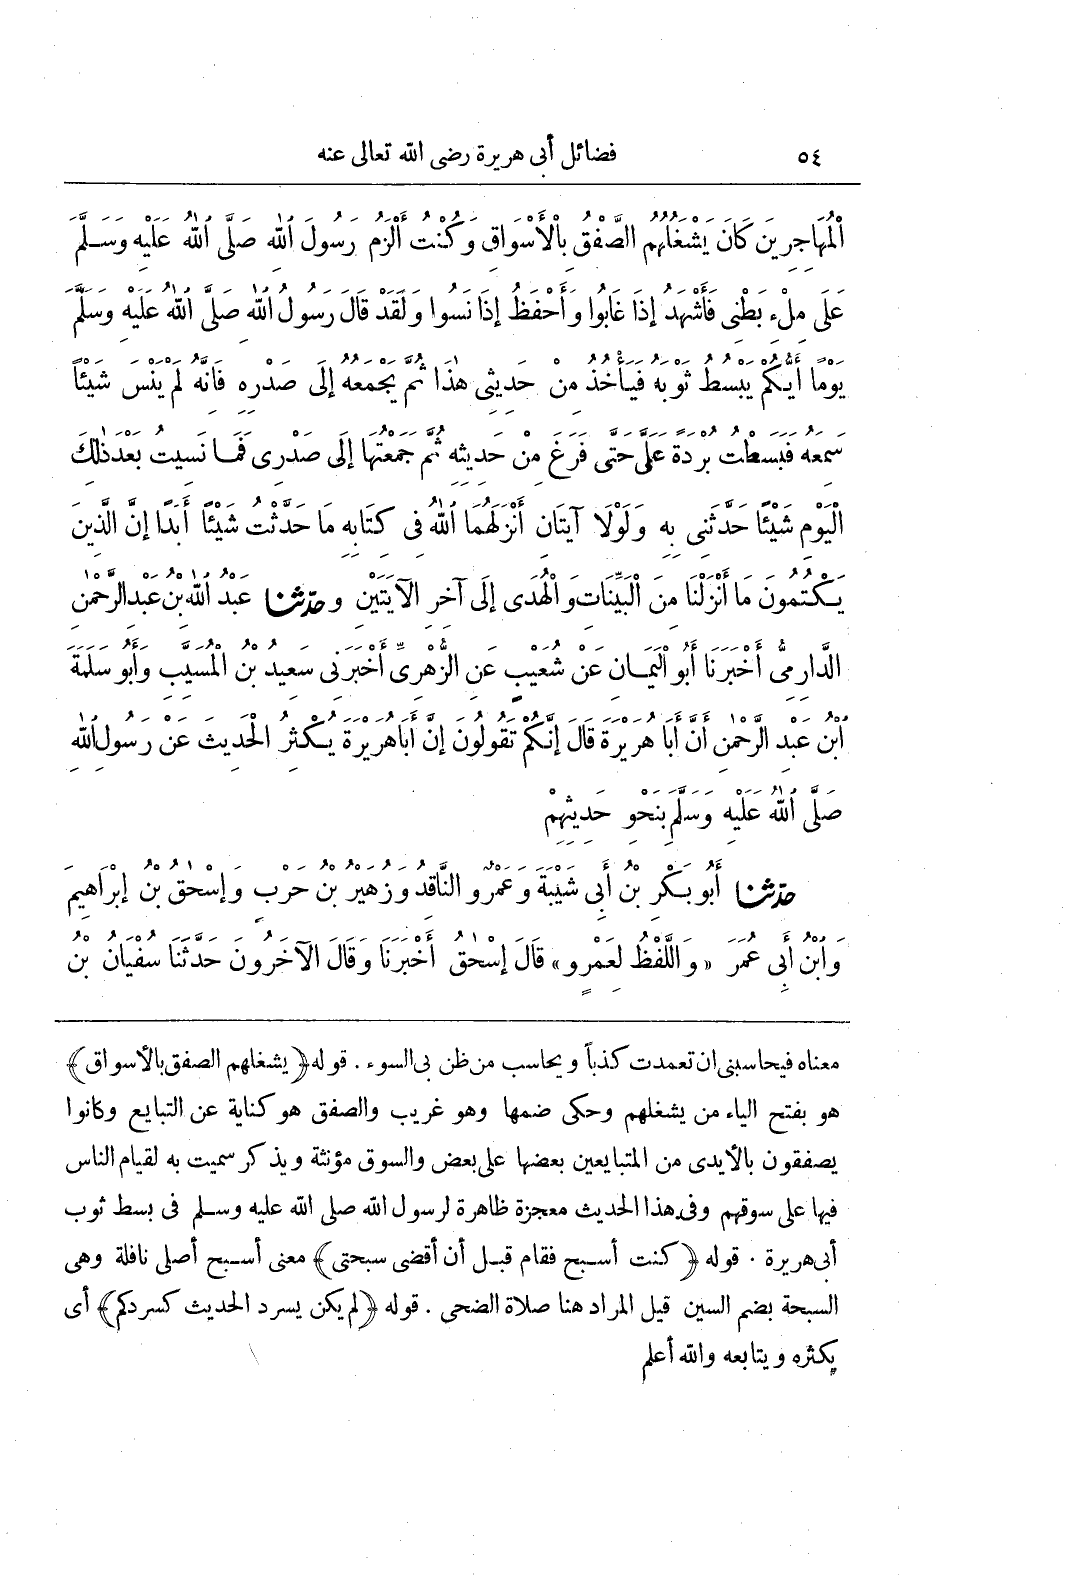 ٥٤ فضائل أبى هريرة رضى الله تعالى عنه
ٱلْمُهَاجِرِينَ كَانَ يَشْغَلُهُمُ الصَّفْقُ بِالْأَسْوَاقِ وَكُنْتُ أَلْزَمُ رَسُولَ ٱللهِ صَلَّى ٱللهُ عَلَيْهِ وَسَلَّمَ
عَلَى مِلْءِ بَطْنِى فَأَشْهَدُ إِذَا غَابُوا وَأَحْفَظُ إِذَا نَسُوا وَلَقَدْ قَالَ رَسُولُ ٱللهِ صَلَّى ٱللهُ عَلَيْهِ وَسَلَّمَ
يَوْمًا أَيُّكُمْ يَبْسُطُ ثَوْبَهُ فَيَأْخُذُ مِنْ حَدِيثِى هٰذَا ثُمَّ يَجْمَعُهُ إِلَى صَدْرِهِ فَإِنَّهُ لَمْ يَنْسَ شَيْئًا
سَمِعَهُ فَبَسَطْتُ بُرْدَةً عَلَىَّ حَتَّى فَرَغَ مِنْ حَدِيثِهِ ثُمَّ جَمَعْتُهَا إِلَى صَدْرِى فَمَا نَسِيتُ بَعْدَ ذٰلِكَ
الْيَوْمِ شَيْئًا حَدَّثَنِى بِهِ وَلَوْلَا آيَتَانِ أَنْزَلَهُمَا ٱللهُ فِى كِتَابِهِ مَا حَدَّثْتُ شَيْئًا أَبَدًا إِنَّ الَّذِينَ
يَكْتُمُونَ مَا أَنْزَلْنَا مِنَ الْبَيِّنَاتِ وَالْهُدَى إِلَى آخِرِ الْآيَتَيْنِ و حدثنا عَبْدُ ٱللهِ بْنُ عَبْدِ الرَّحْمٰنِ
الدَّارِمِىُّ أَخْبَرَنَا أَبُو الْيَمَانِ عَنْ شُعَيْبٍ عَنِ الزُّهْرِىِّ أَخْبَرَنِى سَعِيدُ بْنُ الْمُسَيَّبِ وَأَبُو سَلَمَةَ
ٱبْنُ عَبْدِ الرَّحْمٰنِ أَنَّ أَبَا هُرَيْرَةَ قَالَ إِنَّكُمْ تَقُولُونَ إِنَّ أَبَا هُرَيْرَةَ يُكْثِرُ الْحَدِيثَ عَنْ رَسُولِ ٱللهِ
صَلَّى ٱللهُ عَلَيْهِ وَسَلَّمَ بِنَحْوِ حَدِيثِهِمْ
حدثنا أَبُو بَكْرِ بْنُ أَبِى شَيْبَةَ وَعَمْرٌو النَّاقِدُ وَزُهَيْرُ بْنُ حَرْبٍ وَإِسْحٰقُ بْنُ إِبْرَاهِيمَ
وَٱبْنُ أَبِى عُمَرَ «وَاللَّفْظُ لِعَمْرٍو» قَالَ إِسْحٰقُ أَخْبَرَنَا وَقَالَ الْآخَرُونَ حَدَّثَنَا سُفْيَانُ بْنُ
معناه فيحاسبنى ان تعمدت كذباً ويحاسب من ظن بى السوء . قوله ﴿يشغلهم الصفق بالأسواق﴾
هو بفتح الياء من يشغلهم وحكى ضمها وهو غريب والصفق هو كناية عن التبايع وكانوا
يصفقون بالأيدى من المتبايعين بعضها على بعض والسوق مؤنثة ويذكر سميت به لقيام الناس
فيها على سوقهم وفى هذا الحديث معجزة ظاهرة لرسول الله صلى الله عليه وسلم فى بسط ثوب
أبى هريرة . قوله ﴿كنت أسبح فقام قبل أن أقضى سبحتى﴾ معنى أسبح أصلى نافلة وهى
السبحة بضم السين قيل المراد هنا صلاة الضحى . قوله ﴿لم يكن يسرد الحديث كسردكم﴾ أى
يكثره ويتابعه والله أعلم